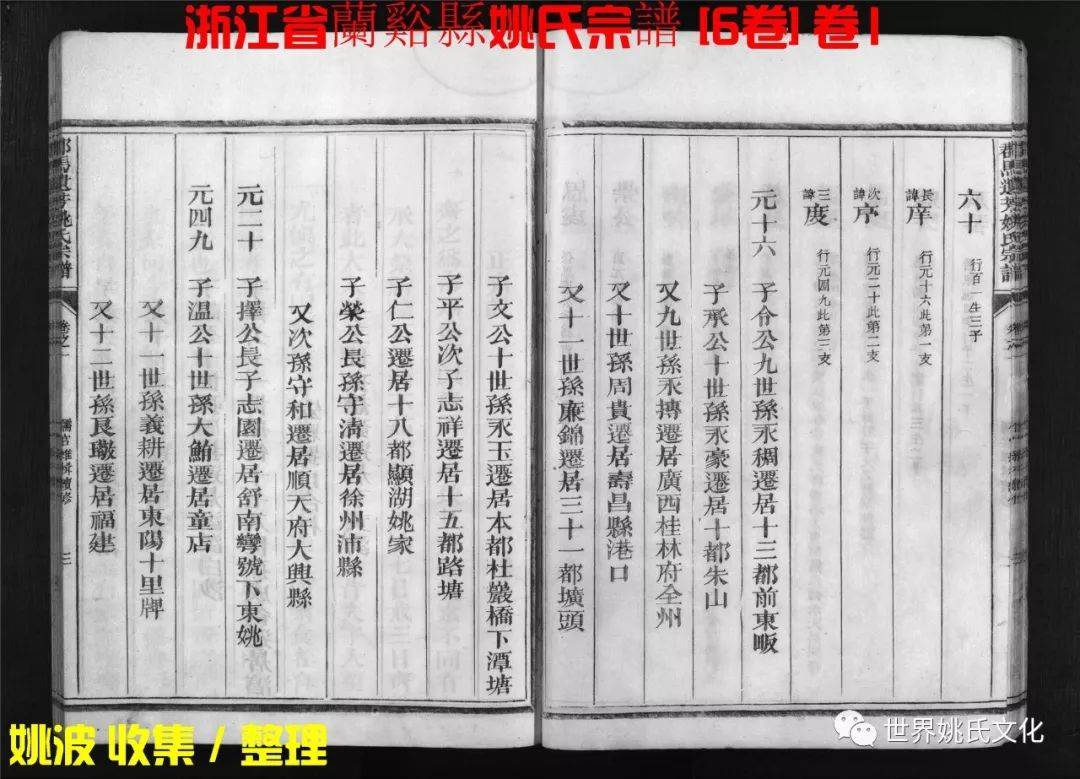 浙江省蘭谿縣姚氏宗譜 [6卷] 卷1
郡馬遺芳姚氏宗譜
六十 行百一生三子
長諱庠 行元十六此第一支
次諱序 行元二十此第二支
三諱度 行元四九此第三支
元十六 子令公九世孫永稠遷居十三都前東畈
子承公十世孫永豪遷居十都朱山
又九世孫永摶遷居廣西桂林府全州
又十世孫周貴遷居壽昌縣港口
又十一世孫廉錦遷居三十一都壙頭
子文公十世孫永玉遷居本都杜巖橋下潭塘
子平公次子志祥遷居十五都路塘
子仁公遷居十八都顯湖姚家
子榮公長孫守清遷居徐州沛縣
又次孫守和遷居順天府大興縣
元二十 子擇公長子志園遷居舒南彎號下東姚
元四九 子温公十世孫大鮪遷居童店
又十一世孫義耕遷居東陽十里牌
又十二世孫良璥遷居福建
郡馬遺芳姚氏宗譜
卷之一
三
姚波 收集 / 整理
世界姚氏文化